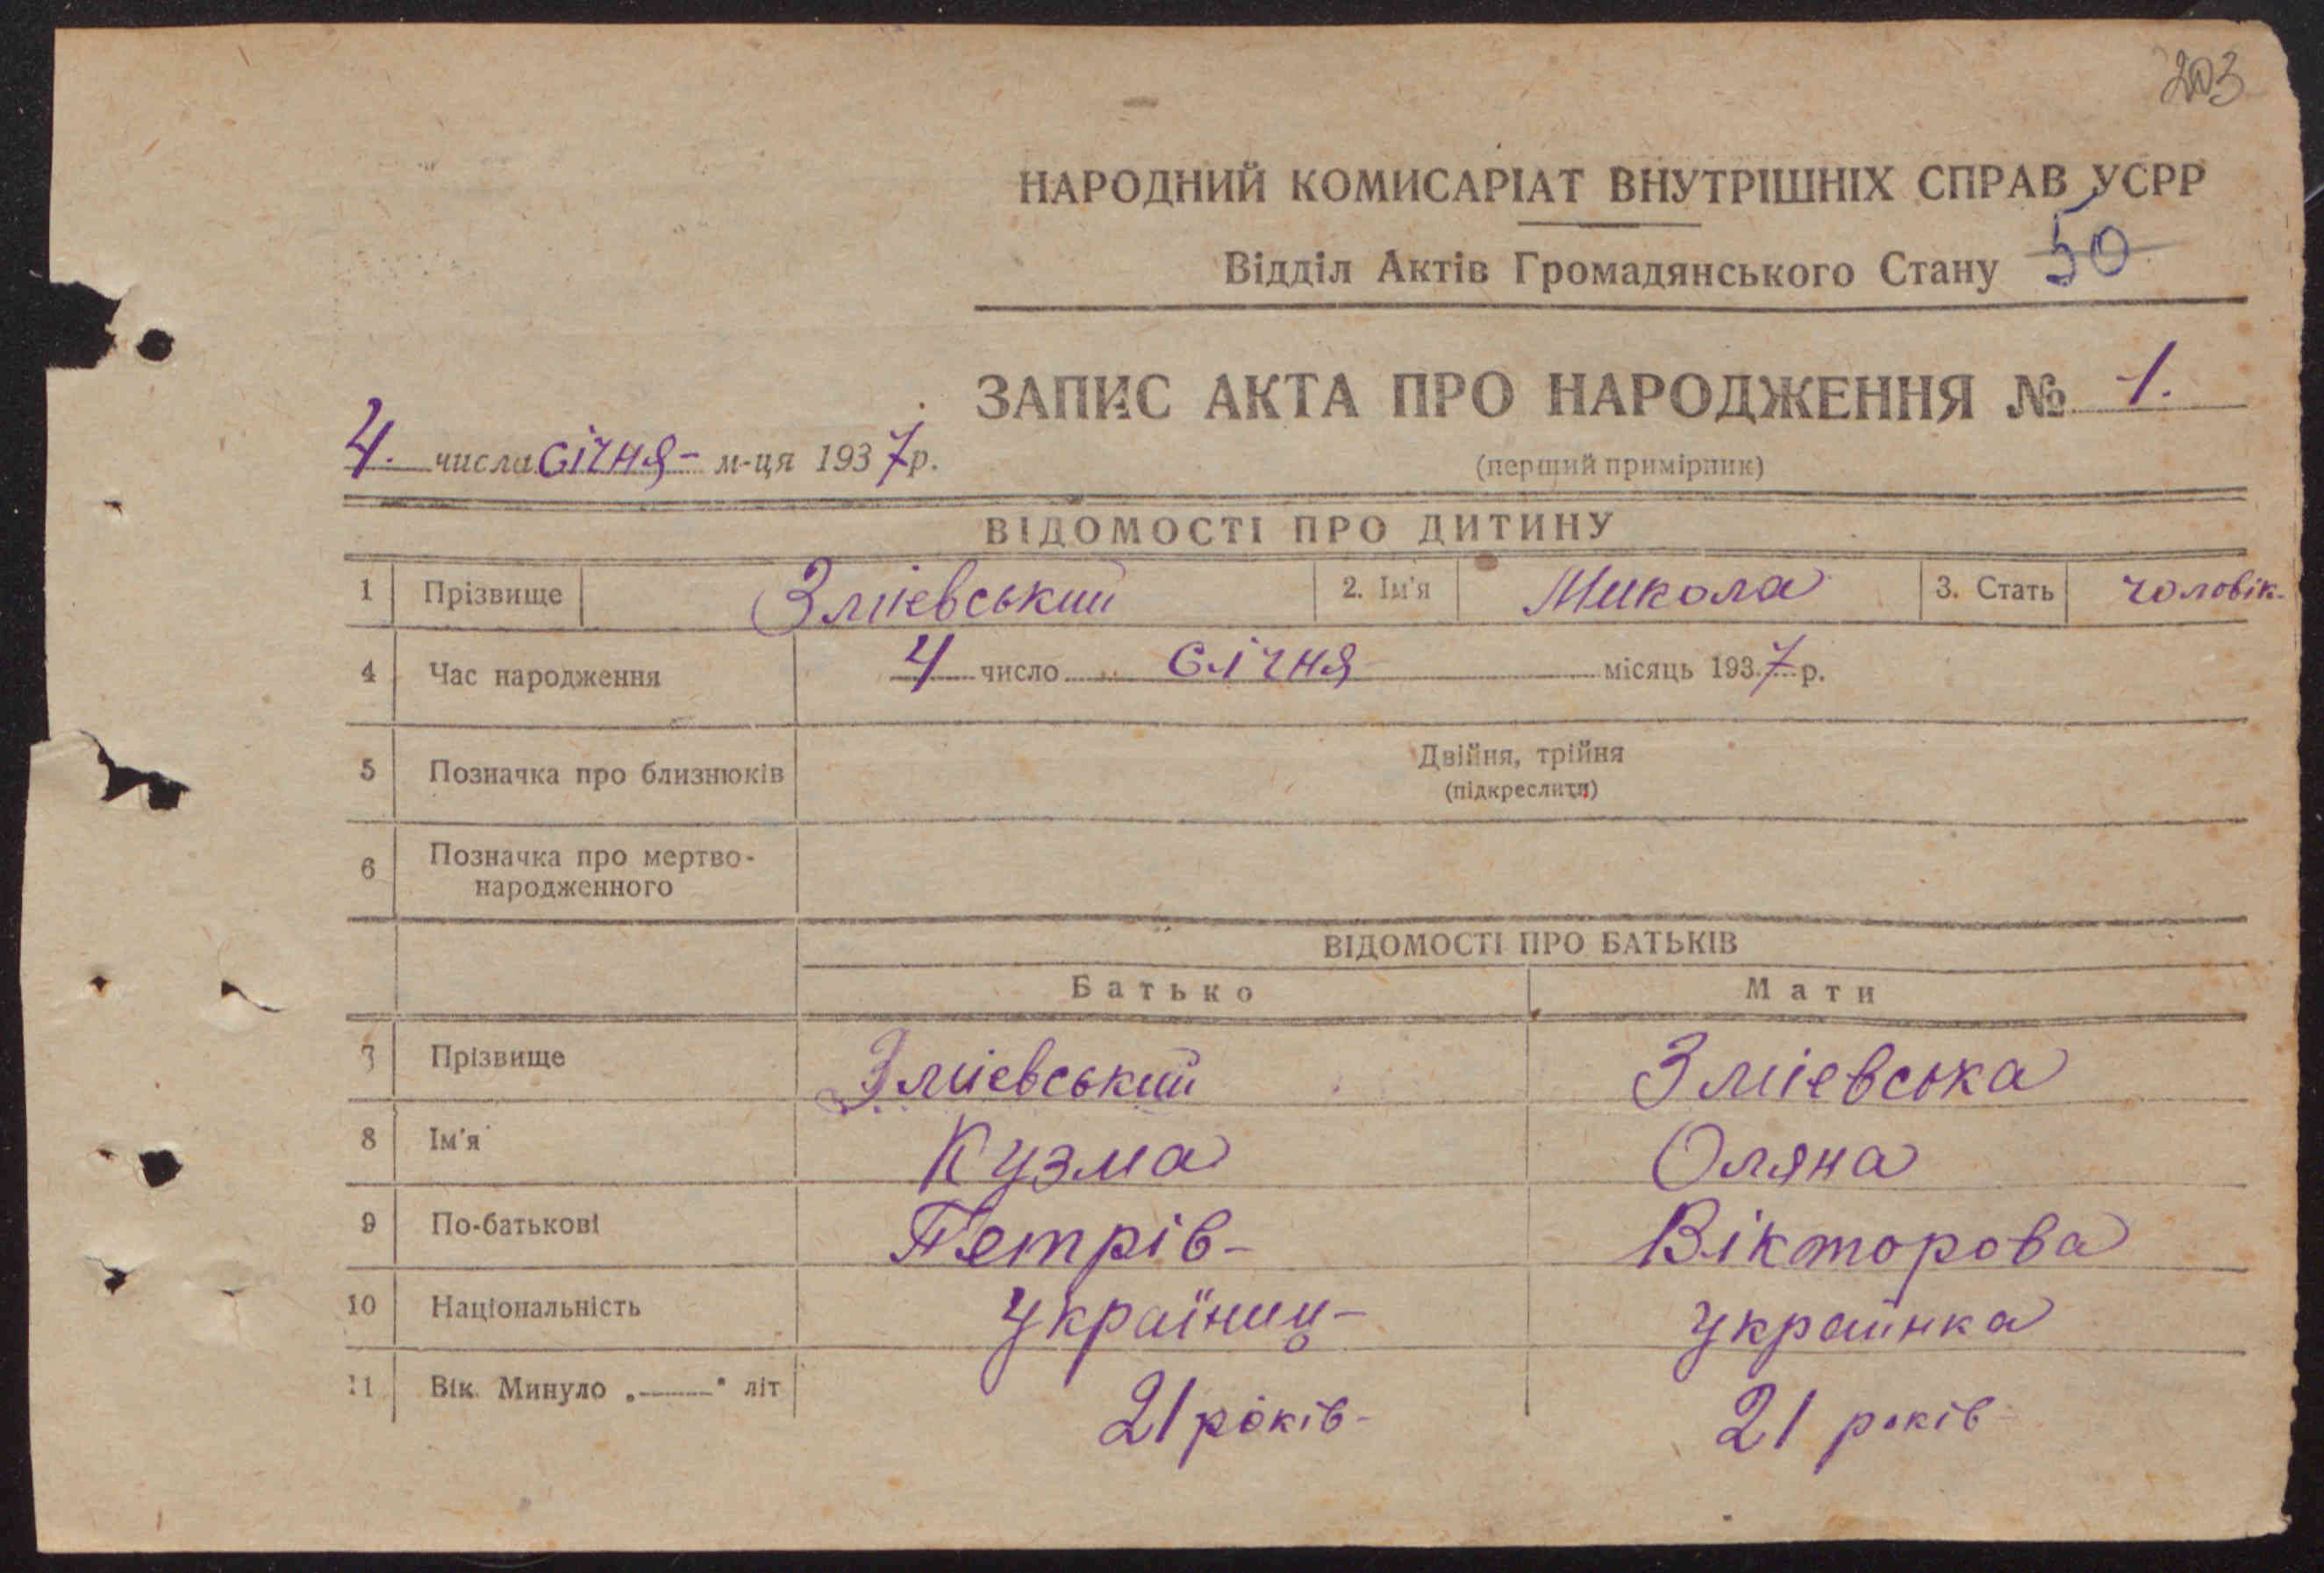 203
НАРОДНИЙ КОМИСАРІАТ ВНУТРІШНІХ СПРАВ УСРР
Відділ Актів Громадянського Стану 50
ЗАПИС АКТА ПРО НАРОДЖЕННЯ № 1.
4. числа січня - м-ця 1937 р.
(перший примірник)
ВІДОМОСТІ ПРО ДИТИНУ
1 Прізвище Зміевський 2. Ім'я Микола 3. Стать чоловік.
4 Час народження 4 число січня місяць 1937 р.
5 Позначка про близнюків Двійня, трійня
(підкреслити)
6 Позначка про мертво-
народженного
ВІДОМОСТІ ПРО БАТЬКІВ
Батько Мати
7 Прізвище Зміевський Зміевська
8 Ім'я Кузма Оляна
9 По-батькові Петрів- Вікторова
10 Національність Українец- Українка
11 Вік. Минуло „——" літ 21 років- 21 років